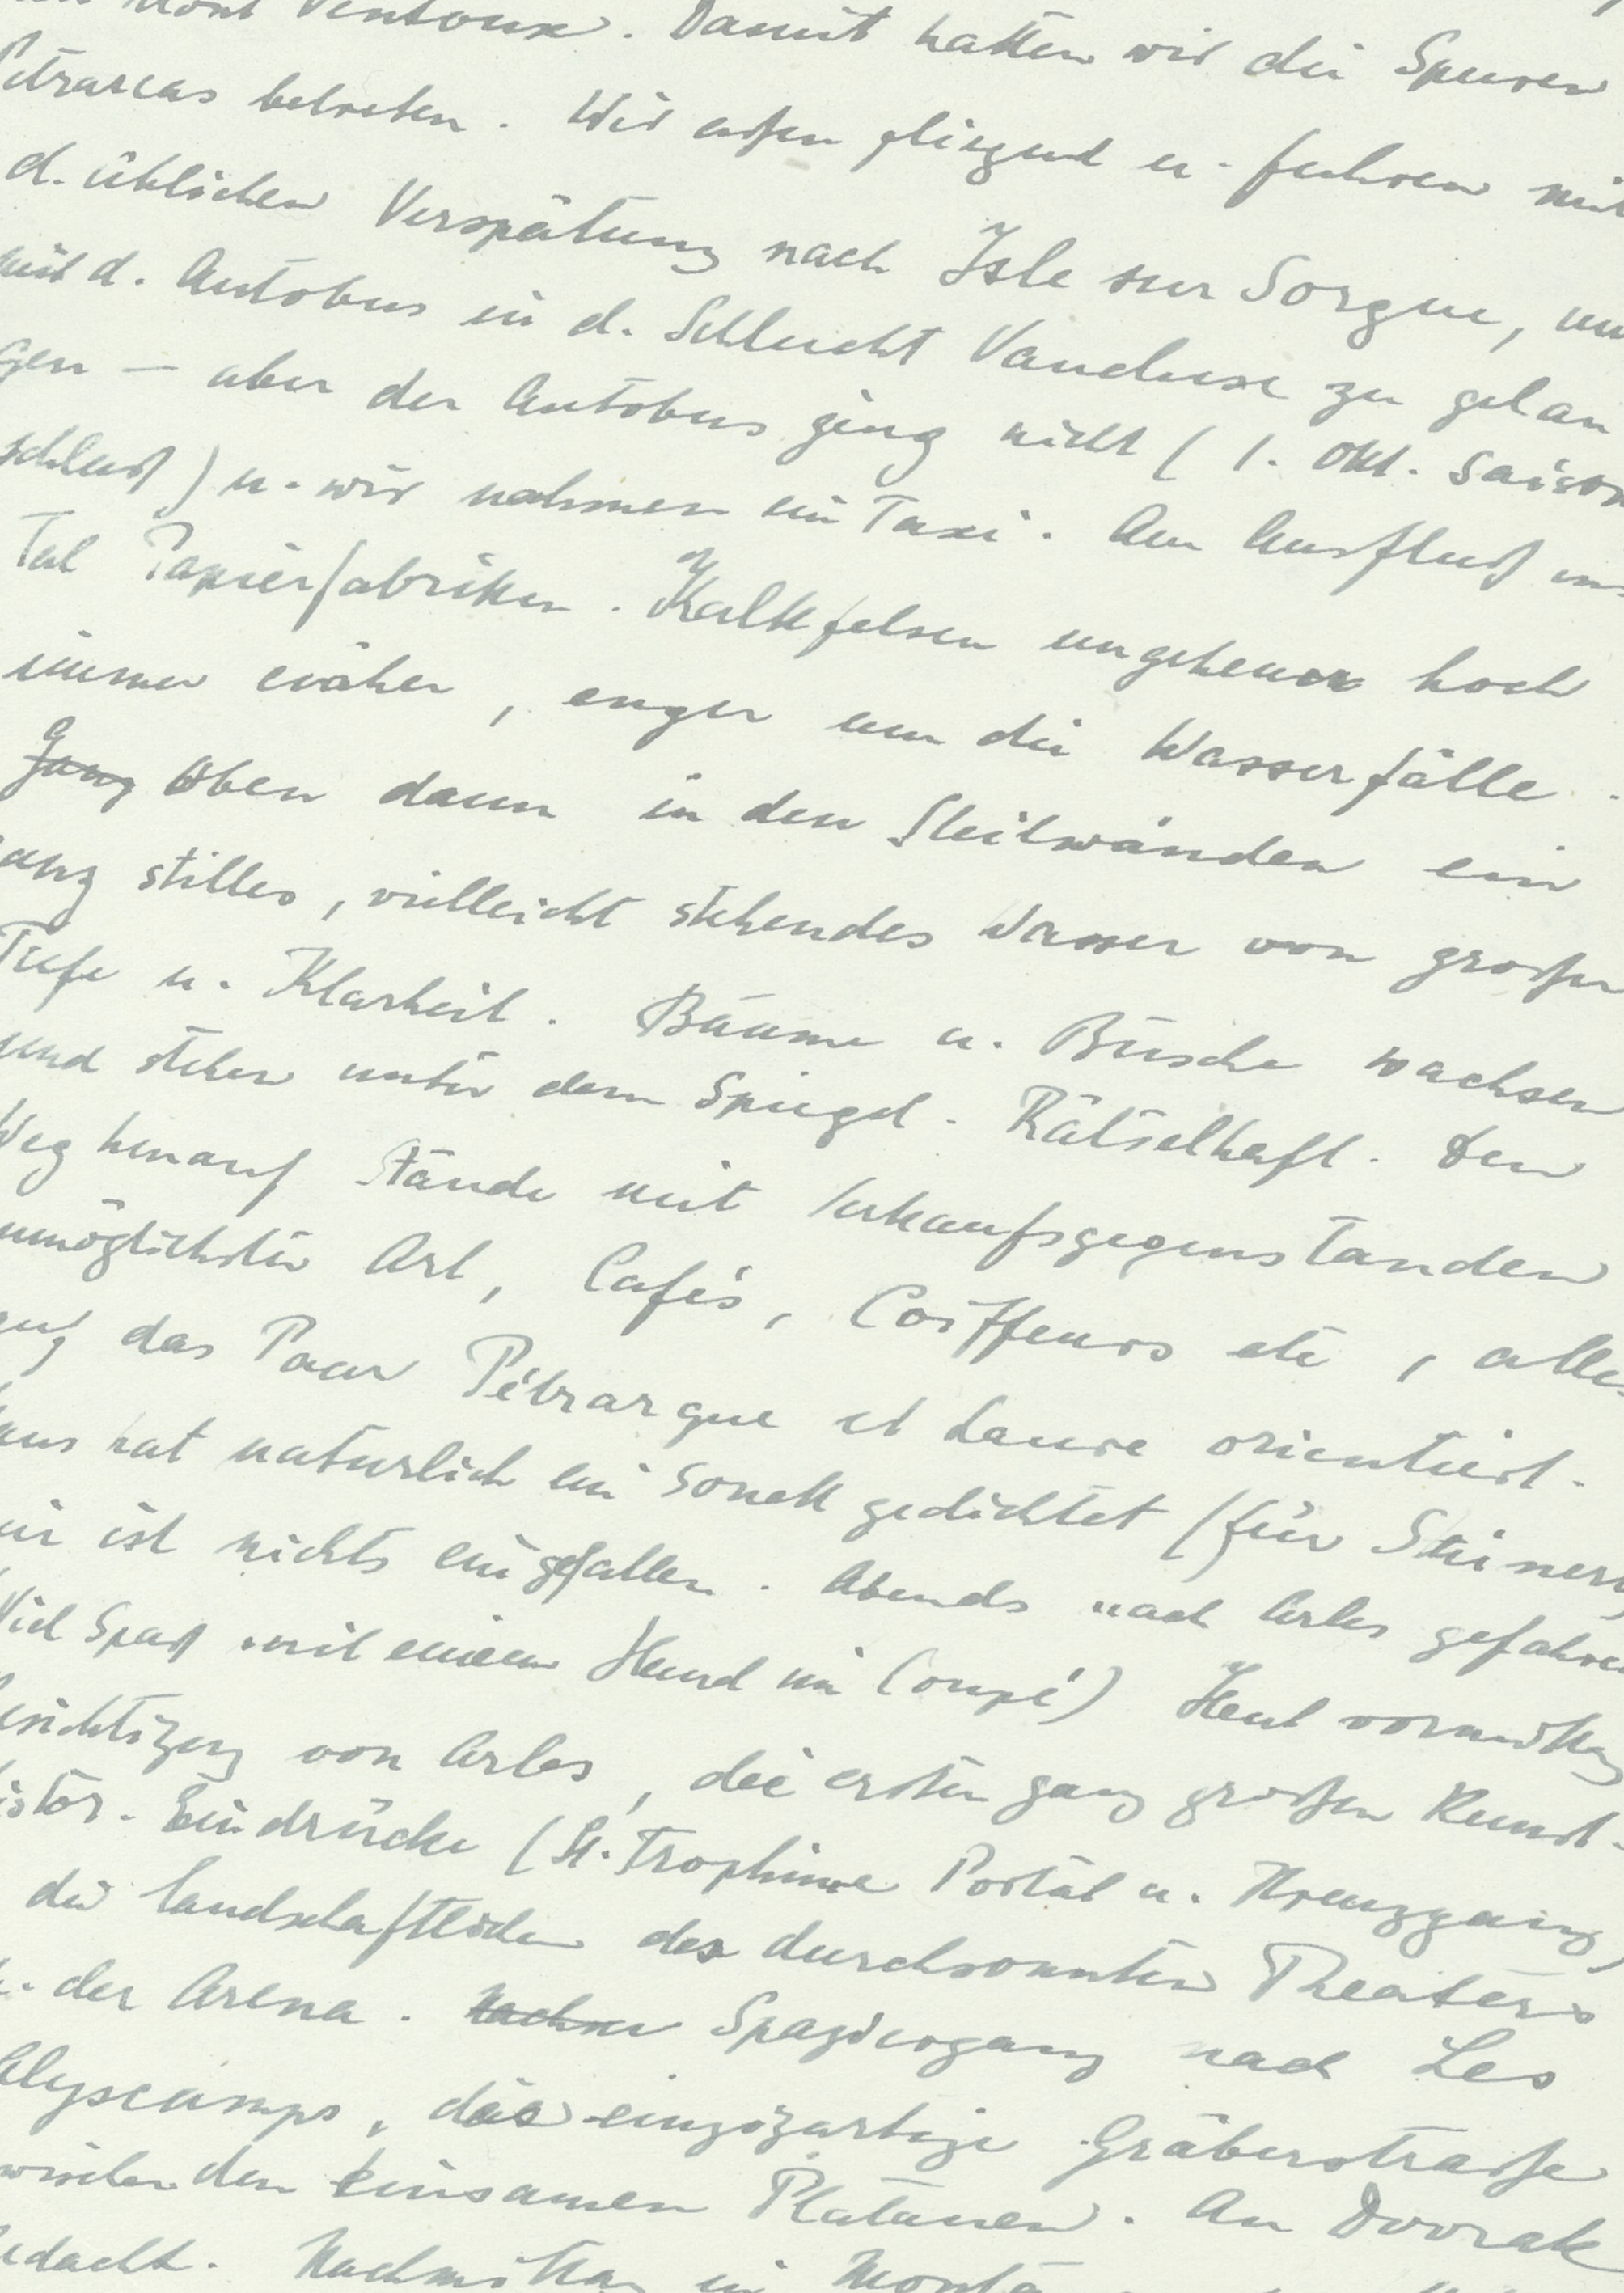 Mont Ventoux. Damit hatten wir die Spuren
Petrarcas betreten. Wir aßen fliegend u. fuhren mit
d. üblichen Verspätung nach Isle sur Sorgue, um
mit d. Autobus in d. Schlucht Vaucluse zu gelan
gen – aber der Autobus ging nicht (1. Okt. Saison
schluß) u. wir nahmen ein Taxi. Am Ausfluß ins
Tal Papierfabriken. Kalkfelsen ungeheuer hoch
immer näher, enger um die Wasserfälle.
Ganz Oben dann in den Steilwänden ein
ganz stilles, vielleicht stehendes Wasser von großer
Tiefe u. Klarheit. Bäume u. Büsche wachsen
und stehen unter dem Spiegel. Rätselhaft. Den
Weg herauf Stände mit Verkaufsgegenständen
unmöglichster Art, Cafés, Coiffeurs etc, alles
auf das Paar Pétrarque et Laure orientiert.
hat natürlich ein Sonett gedichtet (für Steiner)
mir ist nichts eingefallen. Abends nach Arles gefahren
Viel Spaß mit einem Hund im Coupé) Heut vormittag
Besichtigung von Arles, die ersten ganz großen Kunst-
histor. Eindrücke (St. Trophime Portal u. Kreuzgang)
die landschaftlichen des durchsonnten Theaters
u. der Arena. Spaziergang nach Les
Alyscamps, das einzigartige Gräberstraße
zwischen den einsamen Platanen. An Dvorak
gedacht. Nachmittag in